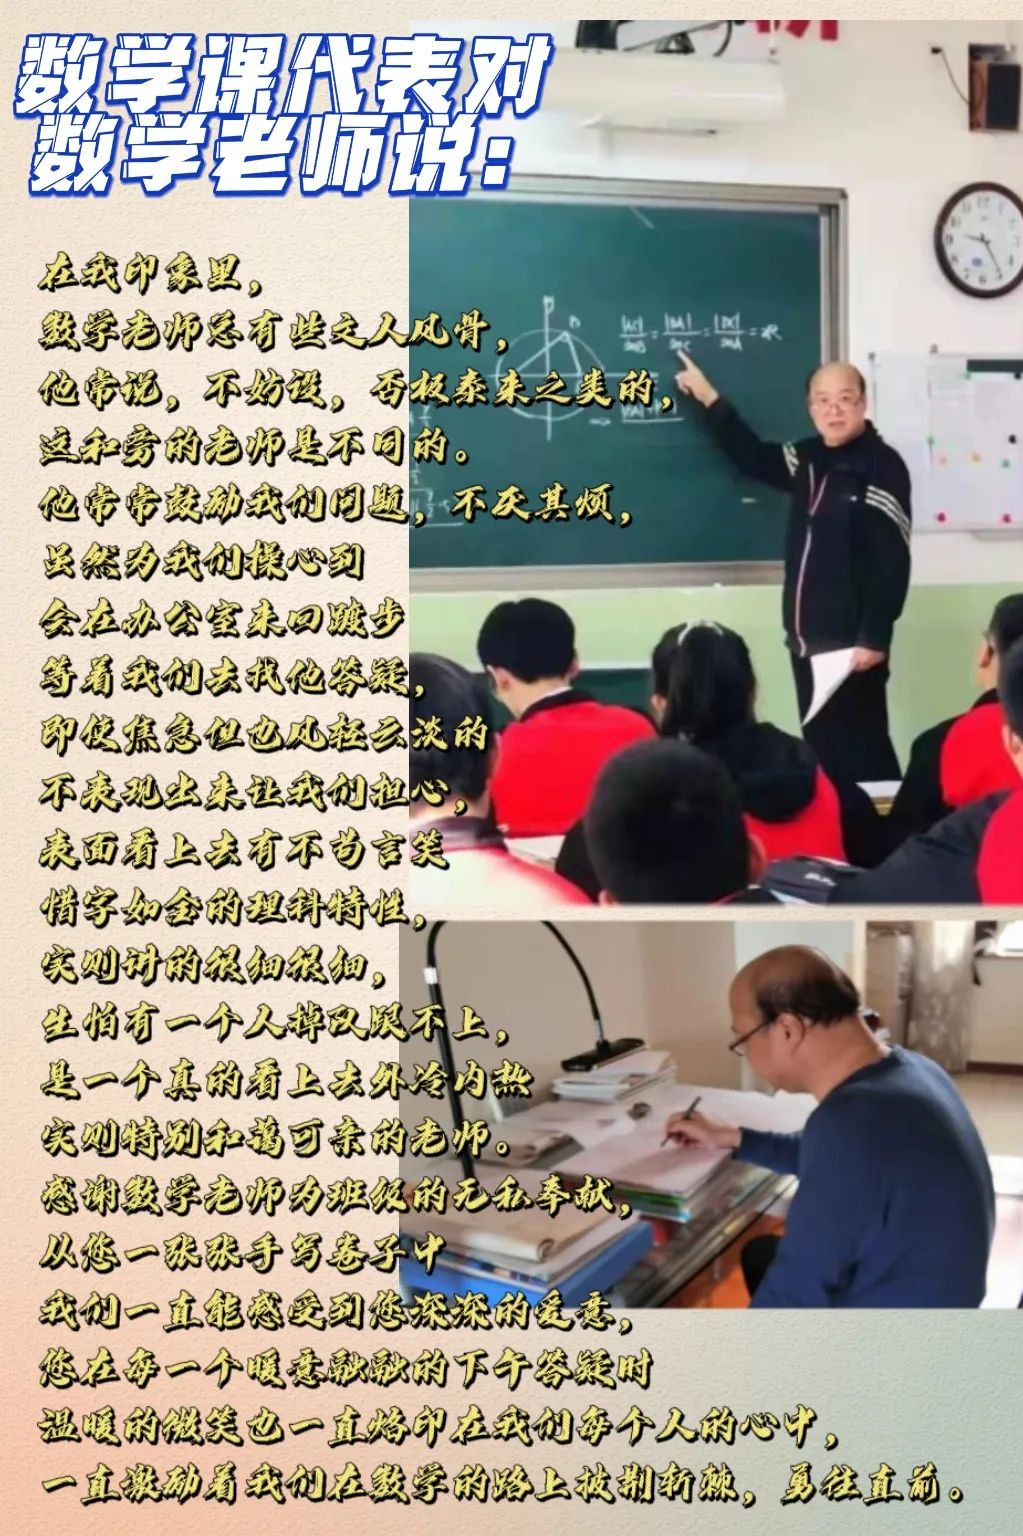 数学课代表对
数学老师说：
在我印象里，
数学老师总有些文人风骨，
他常说，不妨设，否极泰来之类的，
这和旁的老师是不同的。
他常常鼓励我们问题，不厌其烦，
虽然为我们操心到
会在办公室来回踱步
等着我们去找他答疑，
即使焦急但也风轻云淡的
不表现出来让我们担心，
表面看上去有不苟言笑
惜字如金的理科特性，
实则讲的很细很细，
生怕有一个人掉队跟不上，
是一个真的看上去外冷内热
实则特别和蔼可亲的老师。
感谢数学老师为班级的无私奉献，
从您一张张手写卷子中
我们一直能感受到您深深的爱意，
您在每一个暖意融融的下午答疑时
温暖的微笑也一直烙印在我们每个人的心中，
一直激励着我们在数学的路上披荆斩棘，勇往直前。